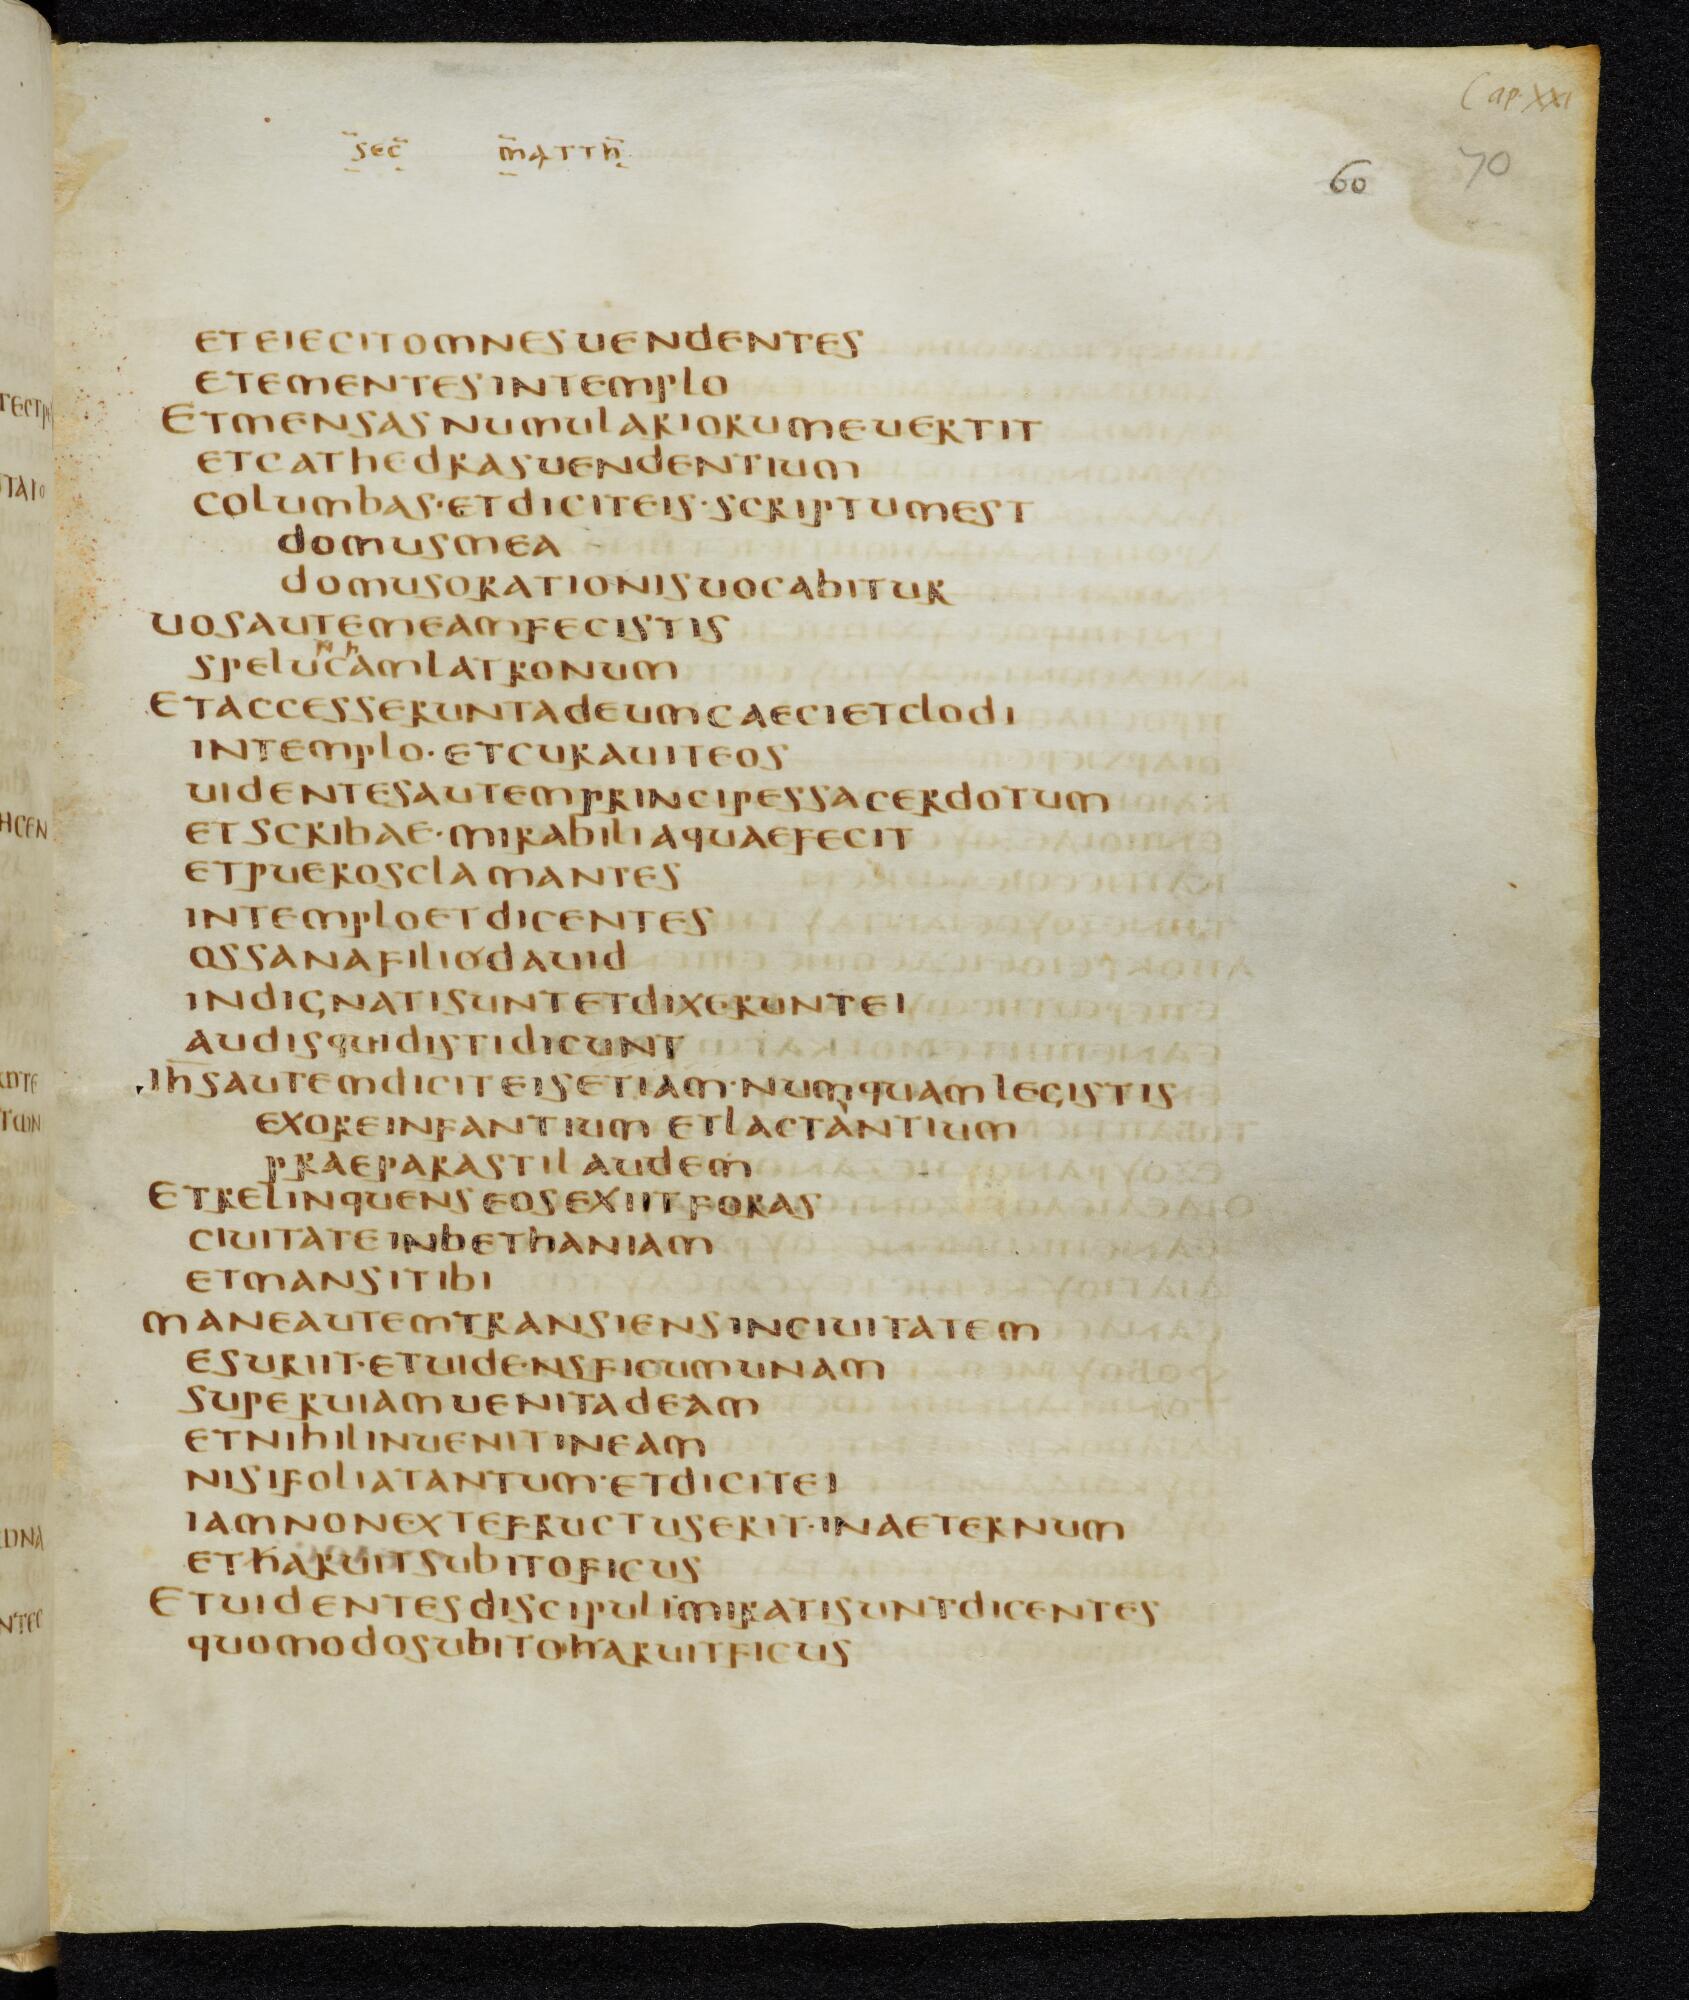 Cap. XXI
sec̅ m̅atth̅
60 70
et eiecit omnes uendentes
et ementes in templo
Et mensas numulariorum euertit
et cathedras uendentium
columbas · et dicit eis · scriptum est
domus mea
domus orationis uocabitur
uos autem eam fecistis
speluncham latronum
Et accesserunt ad eum caeci et clodi
in templo · et curauit eos
uidentes autem principes sacerdotum
et scribae · mirabilia quae fecit
et pueros clamantes
in templo et dicentes
ossana filio dauid
indignati sunt et dixerunt ei
audis quid isti dicunt
ihs autem dicit eis etiam · numquam legistis
ex ore infantium et lactantium
praeparasti laudem
Et relinquens eos exiit foras
ciuitate in bethaniam
et mansit ibi
mane autem transiens in ciuitatem
esuriit · et uidens ficum unam
super uiam uenit ad eam
et nihil inuenit in eam
nisi folia tantum · et dicit ei
iam non ex te fructus erit · in aeternum
et haruit subito ficus
Et uidentes discipuli mirati sunt dicentes
quomodo subito haruit ficus